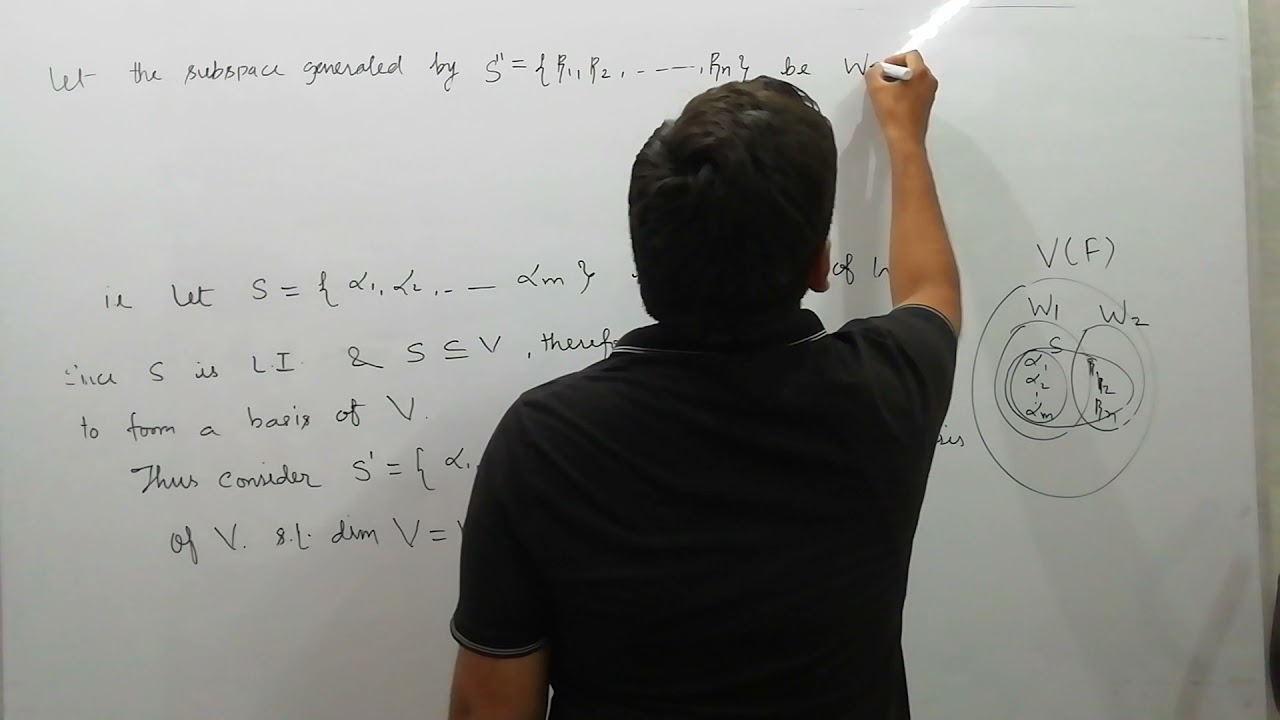 Let the subspace generated by S" = { β1, β2, - - - -, βn } be W
ie let S = { α1, α2, - - αm } of
Since S is L.I. & S ⊆ V, theref
to form a basis of V.
Thus consider S' = { α1
sis
of V. s.t. dim V =
V(F)
W1 W2
S
α1 β1
α2 β2
αm βn